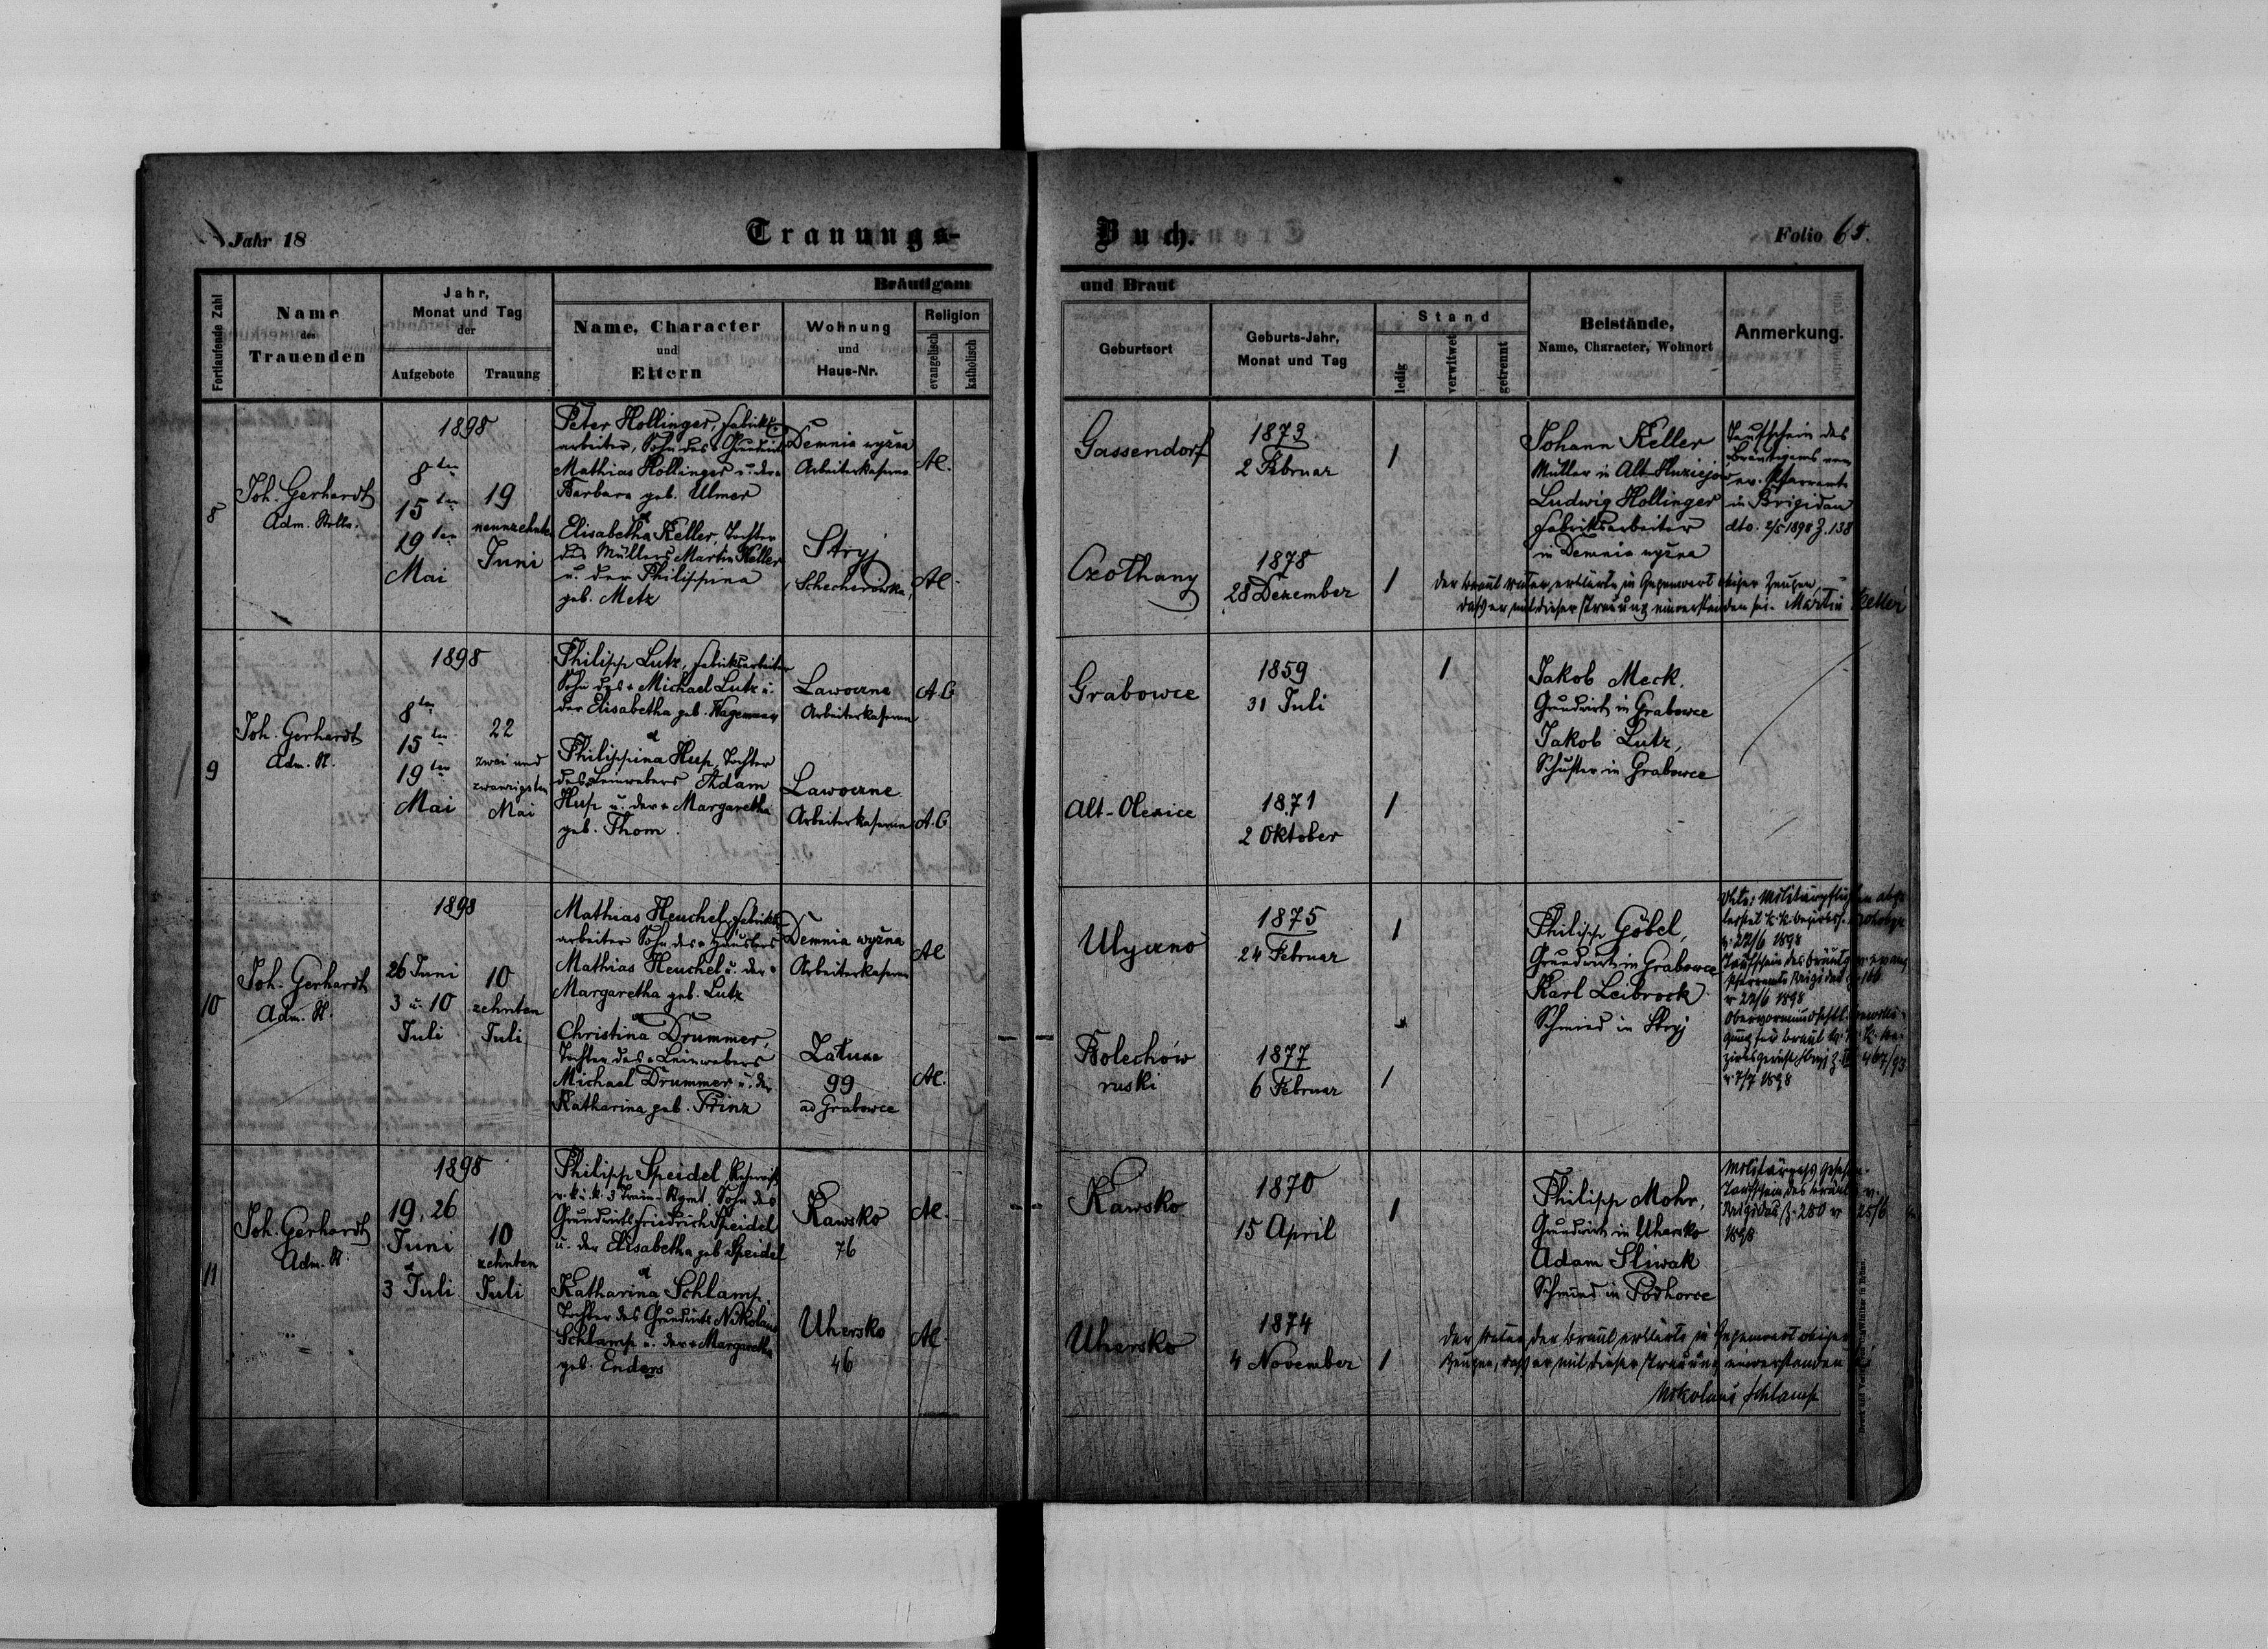 Jahr 18
Trauungs-
Buch.
Folio 65.
Fortlaufende Zahl
Name
des
Trauenden
Jahr,
Monat und Tag
der
Aufgebote
Trauung
Bräutigam
und Braut
Name, Character
und
Eltern
Wohnung
und
Haus-Nr.
Religion
evangelisch
katholisch
Geburtsort
Geburts-Jahr,
Monat und Tag
Stand
ledig
verwitwet
getrennt
Beistände,
Name, Character, Wohnort
Anmerkung.
8
Joh. Gerhardt
Adm. Stellv.
1898
8ten
15ten
19ten
Mai
19
neunzehnten
Juni
Peter Hollinger, Fabriks-
arbeiter, Sohn des Grundwirts
Mathias Hollinger u. der
Barbara geb. Ulmer
Elisabetha Keller, Tochter
des Müllers Martin Keller
u. der Philippina
geb. Metz
Demnia wyżna
Arbeiterkaserne
Stryj
Gassendorf
1873
2 Februar
1
1878
28 Dezember
1
Johann Keller
Müller in Alt-
Ludwig Hollinger
Fabriksarbeiter
in Demnia wyżna
Taufschein des
Bräutigams vom
ev. Pfarramte
in Brigidau
dto. 2/5 1898 Z. 138
Der Brautvater erklärte in Gegenwart obiger Zeugen,
daß er mit dieser Trauung einverstanden sei. Martin Keller
9
Joh. Gerhardt
Adm. St.
1898
8ten
15ten
19ten
Mai
22
zwei und
zwanzigsten
Mai
Philipp Lutz, Fabriksarbeiter
Sohn des + Michael Lutz u.
der Elisabetha geb. Wagemann
Philippina Hup, Tochter
des Leinwebers Adam
Hup u. der + Margaretha
geb. Thom
Lawoczne
Arbeiterkaserne
A. C
Lawoczne
Arbeiterkaserne
A. C
Grabowce
1859
31 Juli
1
Alt-Olexice
1871
2 Oktober
1
Jakob Meck.
Grundwirt in Grabowce
Jakob Lutz,
Schuster in Grabowce
10
Joh. Gerhardt
Adm. St.
1898
26 Juni
3 u. 10
Juli
10
zehnten
Juli
Mathias Heuchel, Fabriks-
arbeiter Sohn des + Häuslers
Mathias Heuchel u. der +
Margaretha geb. Lutz
Christina Drummer,
Tochter des + Leinwebers
Michael Drummer u. der
Katharina geb. Prinz
Demnia wyżna
Arbeiterkaserne
Zatuze
99
ad Grabowce
Ulyczno
1875
24 Februar
1
Bolechów
ruski
1877
6 Februar
1
Philipp Göbel,
Grundwirt in Grabowce
Karl Leibrock
Schmied in Stryj
v. 22/6 1898
Taufschein des Bräutig. v. evang
Pfarramts Brigidau Z. 166
v 22/6 1898
v. 7/7 1898
11
Joh. Gerhardt
Adm. St.
1898
19, 26
Juni
3 Juli
10
zehnten
Juli
Philipp Speidel, Reservist
v. k. u. k. 3 Train-Rgmt. Sohn des
Grundwirts Friedrich Speidel
u. der Elisabetha geb. Speidel
Katharina Schlamp,
Tochter des Grundwirts Nikolaus
Schlamp u. der + Margaretha
geb. Enders
Kawsko
76
Uhersko
46
Kawsko
1870
15 April
1
Uhersko
1874
4 November
1
Philipp Mohr,
Grundwirt in Uhersko
Adam Sliwak
Schmied in Podhorce
Taufschein des Bräutig. v.
Brigidau Z. 280 v 25/6
1898
Der Vater der Braut erklärte in Gegenwart obiger
Zeugen, daß er mit dieser Trauung einverstanden sei
Nikolaus Schlamp